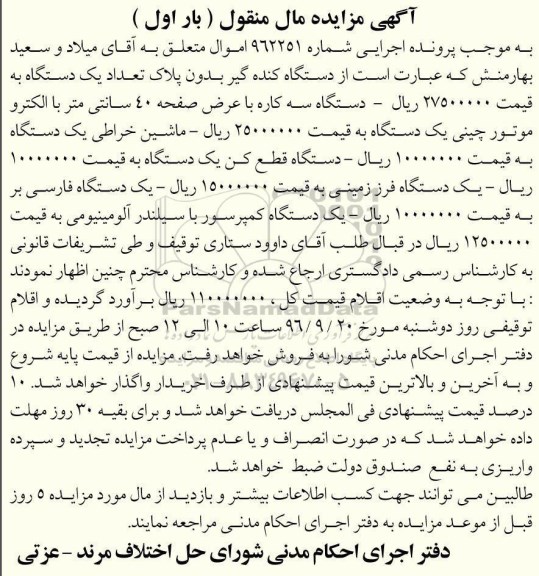 آگهی مزایده مال منقول ( بار اول )
به موجب پرونده اجرایی شماره ۹۶۲۲۵۱ اموال متعلق به آقای میلاد و سعید
بهارمنش که عبارت است از دستگاه کنده گیر بدون پلاک تعداد یک دستگاه به
قیمت ۲۷۵۰۰۰۰۰ ریال - دستگاه سه کاره با عرض صفحه ۴۰ سانتی متر با الکترو
موتور چینی یک دستگاه به قیمت ۲۵۰۰۰۰۰۰ ریال - ماشین خراطی یک دستگاه
به قیمت ۱۰۰۰۰۰۰۰ ریال - دستگاه قطع کن یک دستگاه به قیمت ۱۰۰۰۰۰۰۰
ریال - یک دستگاه فرز زمینی به قیمت ۱۵۰۰۰۰۰۰ ریال - یک دستگاه فارسی بر
به قیمت ۱۰۰۰۰۰۰۰ ریال - یک دستگاه کمپرسور با سیلندر آلومینیومی به قیمت
۱۲۵۰۰۰۰۰ ریال در قبال طلب آقای داوود ستاری توقیف و طی تشریفات قانونی
به کارشناس رسمی دادگستری ارجاع شده و کارشناس محترم چنین اظهار نمودند
: با توجه به وضعیت اقلام قیمت کل ، ۱۱۰۰۰۰۰۰۰ ریال برآورد گردیده و اقلام
توقیفی روز دوشنبه مورخ ۲۰ / ۹ / ۹۶ ساعت ۱۰ الی ۱۲ صبح از طریق مزایده در
دفتر اجرای احکام مدنی شورا به فروش خواهد رفت. مزایده از قیمت پایه شروع
و به آخرین و بالاترین قیمت پیشنهادی از طرف خریدار واگذار خواهد شد. ۱۰
درصد قیمت پیشنهادی فی المجلس دریافت خواهد شد و برای بقیه ۳۰ روز مهلت
داده خواهد شد که در صورت انصراف و یا عدم پرداخت مزایده تجدید و سپرده
واریزی به نفع صندوق دولت ضبط خواهد شد.
طالبین می توانند جهت کسب اطلاعات بیشتر و بازدید از مال مورد مزایده ۵ روز
قبل از موعد مزایده به دفتر اجرای احکام مدنی مراجعه نمایند.
دفتر اجرای احکام مدنی شورای حل اختلاف مرند - عزتی
ParsNamadData